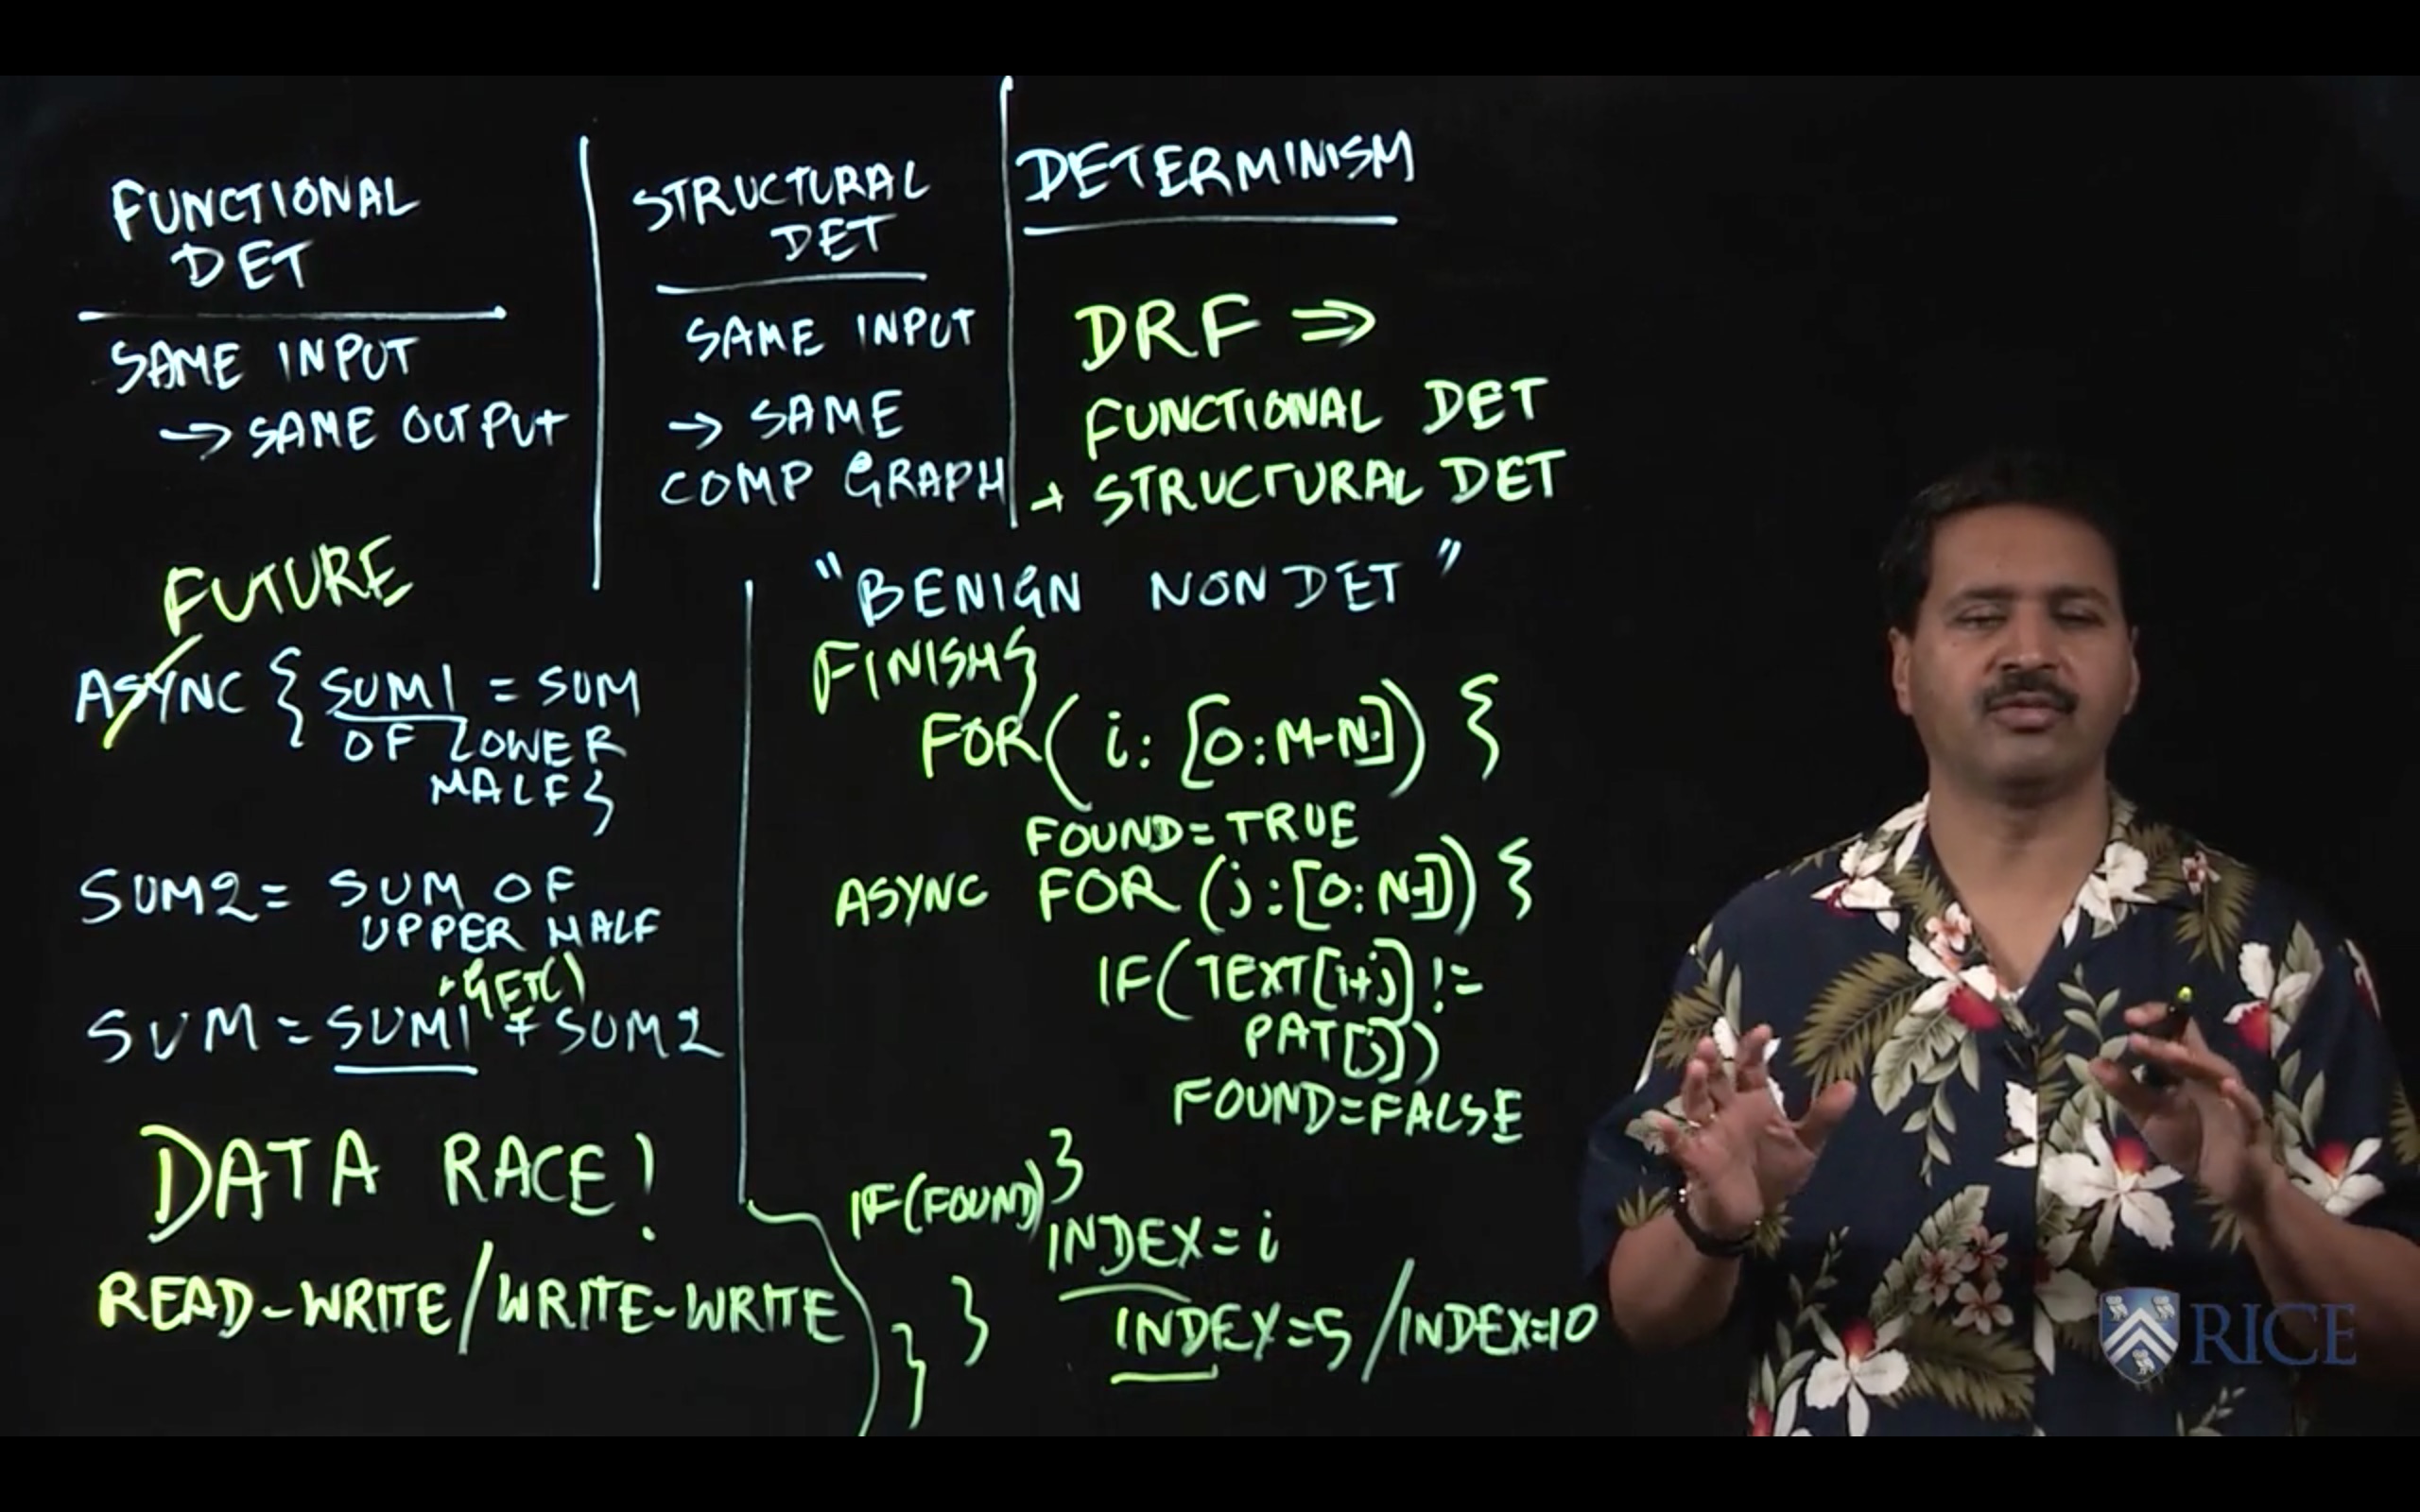 FUNCTIONAL
DET
SAME INPUT
→ SAME OUTPUT
STRUCTURAL
DET
SAME INPUT
→ SAME
COMP GRAPH
DETERMINISM
DRF ⇒
FUNCTIONAL DET
+ STRUCTURAL DET
FUTURE
ASYNC { SUM1 = SUM
OF LOWER
HALF}
SUM2 = SUM OF
UPPER HALF
.GET()
SUM = SUM1 + SUM2
DATA RACE!
READ-WRITE/WRITE-WRITE
"BENIGN NONDET"
FINISH{
FOR( i: [0:M-N]) {
FOUND=TRUE
ASYNC FOR (j:[0:N-1]) {
IF(TEXT[i+j] !=
PAT[j])
FOUND=FALSE
}
IF(FOUND)
INDEX=i
} }
INDEX=5 / INDEX=10
RICE